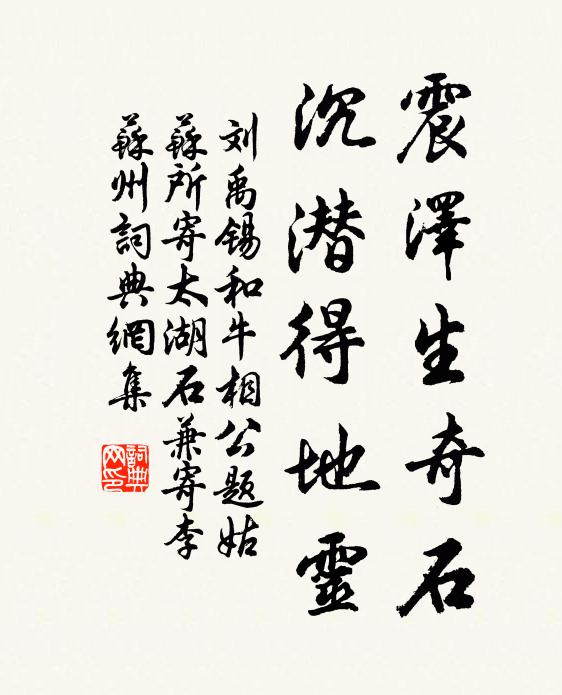 震澤生奇石
沉潜得地靈
刘禹锡和牛相公题姑
蘇所寄太湖石兼寄李
蘇州詞典網集
詞典
网印